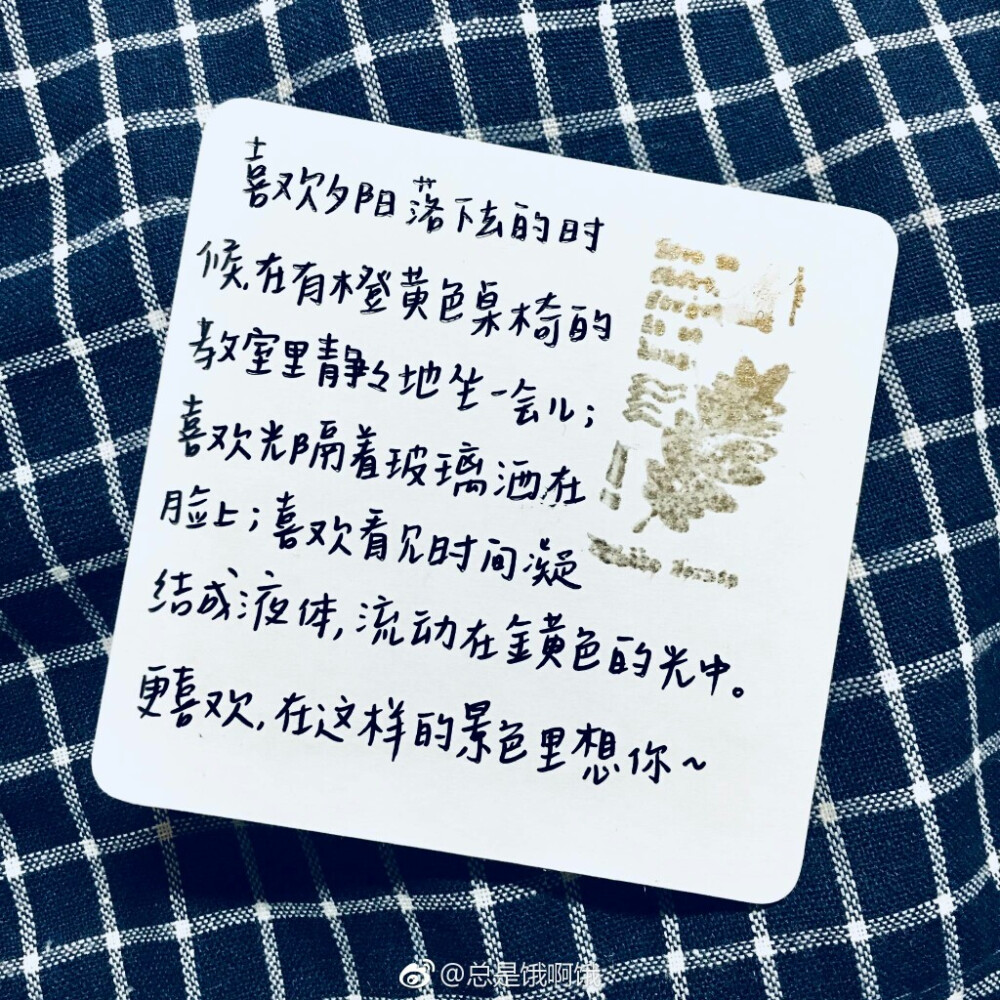 喜欢夕阳落下去的时
候,在有橙黄色桌椅的
教室里静々地坐一会儿;
喜欢光隔着玻璃洒在
脸上;喜欢看见时间凝
结成液体,流动在金黄色的光中。
更喜欢,在这样的景色里想你~
@总是饿啊饿